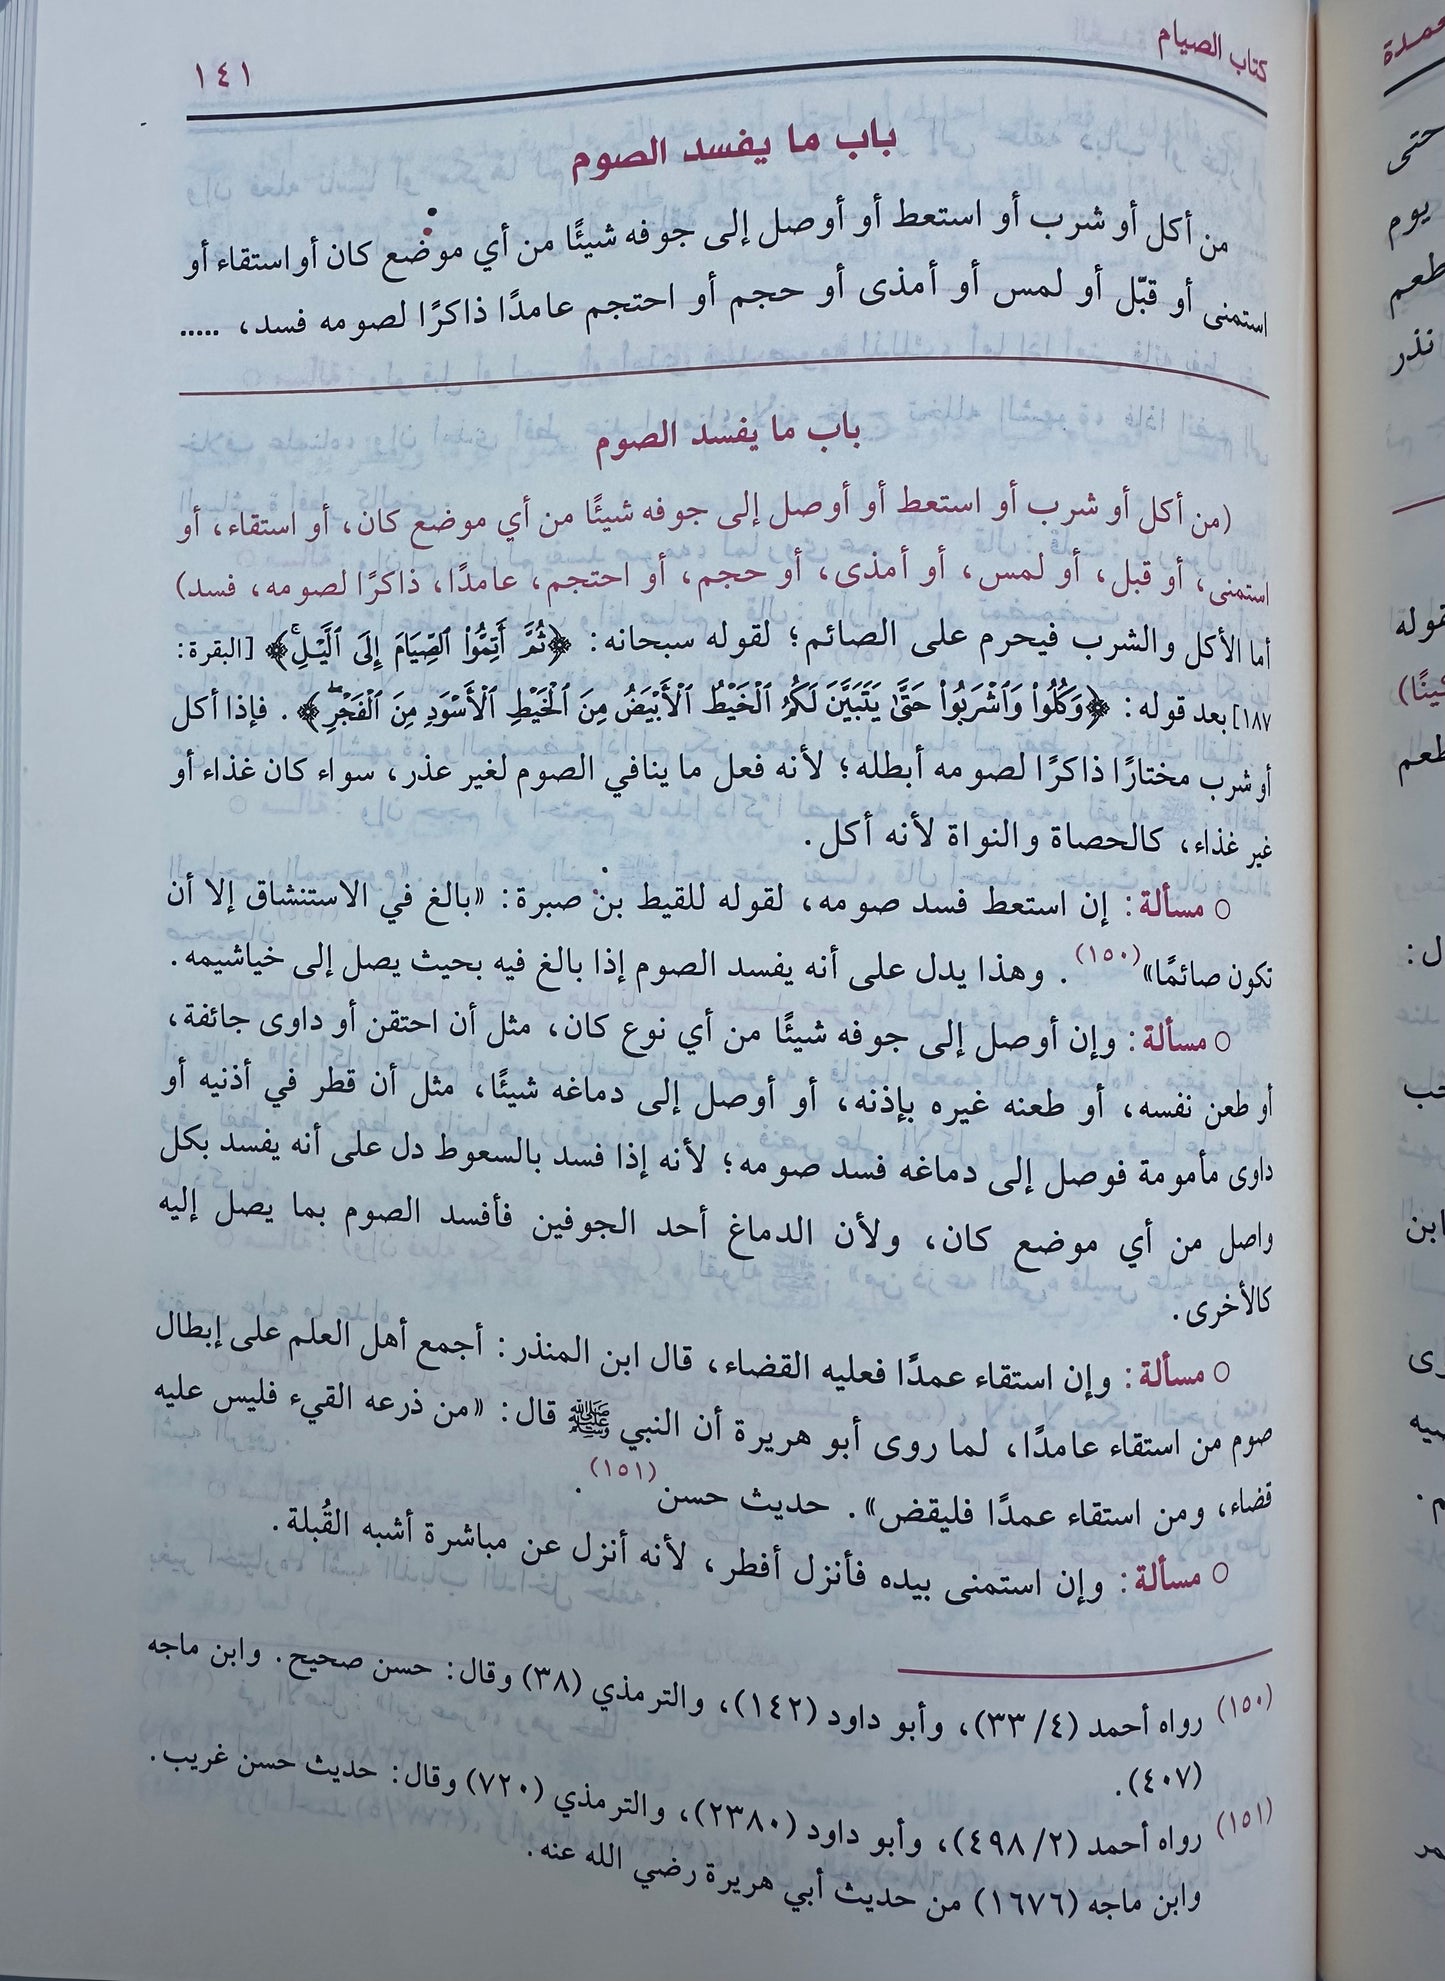 كتاب الصيام
١٤١
باب ما يفسد الصوم
من أكل أو شرب أو استعط أو أوصل إلى جوفه شيئًا من أي موضع كان أو استقاء أو
استمنى أو قبّل أو لمس أو أمذى أو حجم أو احتجم عامدًا ذاكرًا لصومه فسد، .....
باب ما يفسد الصوم
(من أكل أو شرب أو استعط أو أوصل إلى جوفه شيئًا من أي موضع كان، أو استقاء، أو
استمنى، أو قبل، أو لمس، أو أمذى، أو حجم، أو احتجم، عامدًا، ذاكرًا لصومه، فسد)
أما الأكل والشرب فيحرم على الصائم؛ لقوله سبحانه: ﴿ثُمَّ أَتِمُّوا۟ ٱلصِّيَامَ إِلَى ٱلَّيْلِۚ﴾ [البقرة:
١٨٧] بعد قوله: ﴿وَكُلُوا۟ وَٱشْرَبُوا۟ حَتَّىٰ يَتَبَيَّنَ لَكُمُ ٱلْخَيْطُ ٱلْأَبْيَضُ مِنَ ٱلْخَيْطِ ٱلْأَسْوَدِ مِنَ ٱلْفَجْرِۖ﴾. فإذا أكل
أو شرب مختارًا ذاكرًا لصومه أبطله؛ لأنه فعل ما ينافي الصوم لغير عذر، سواء كان غذاء أو
غير غذاء، كالحصاة والنواة لأنه أكل.
○ مسألة: إن استعط فسد صومه، لقوله للقيط بن صبرة: «بالغ في الاستنشاق إلا أن
تكون صائمًا»(١٥٠). وهذا يدل على أنه يفسد الصوم إذا بالغ فيه بحيث يصل إلى خياشيمه.
○ مسألة: وإن أوصل إلى جوفه شيئًا من أي نوع كان، مثل أن احتقن أو داوى جائفة،
أو طعن نفسه، أو طعنه غيره بإذنه، أو أوصل إلى دماغه شيئًا، مثل أن قطر في أذنيه أو
داوى مأمومة فوصل إلى دماغه فسد صومه؛ لأنه إذا فسد بالسعوط دل على أنه يفسد بكل
واصل من أي موضع كان، ولأن الدماغ أحد الجوفين فأفسد الصوم بما يصل إليه
كالأخرى.
○ مسألة: وإن استقاء عمدًا فعليه القضاء، قال ابن المنذر: أجمع أهل العلم على إبطال
صوم من استقاء عامدًا، لما روى أبو هريرة أن النبي ﷺ قال: «من ذرعه القيء فليس عليه
قضاء، ومن استقاء عمدًا فليقض». حديث حسن(١٥١).
○ مسألة: وإن استمنى بيده فأنزل أفطر، لأنه أنزل عن مباشرة أشبه القُبلة.
(١٥٠) رواه أحمد (٤/ ٣٣)، وأبو داود (١٤٢)، والترمذي (٣٨) وقال: حسن صحيح. وابن ماجه
(٤٠٧).
(١٥١) رواه أحمد (٢/ ٤٩٨)، وأبو داود (٢٣٨٠)، والترمذي (٧٢٠) وقال: حديث حسن غريب.
وابن ماجه (١٦٧٦) من حديث أبي هريرة رضي الله عنه.
حتى
يوم
نذر